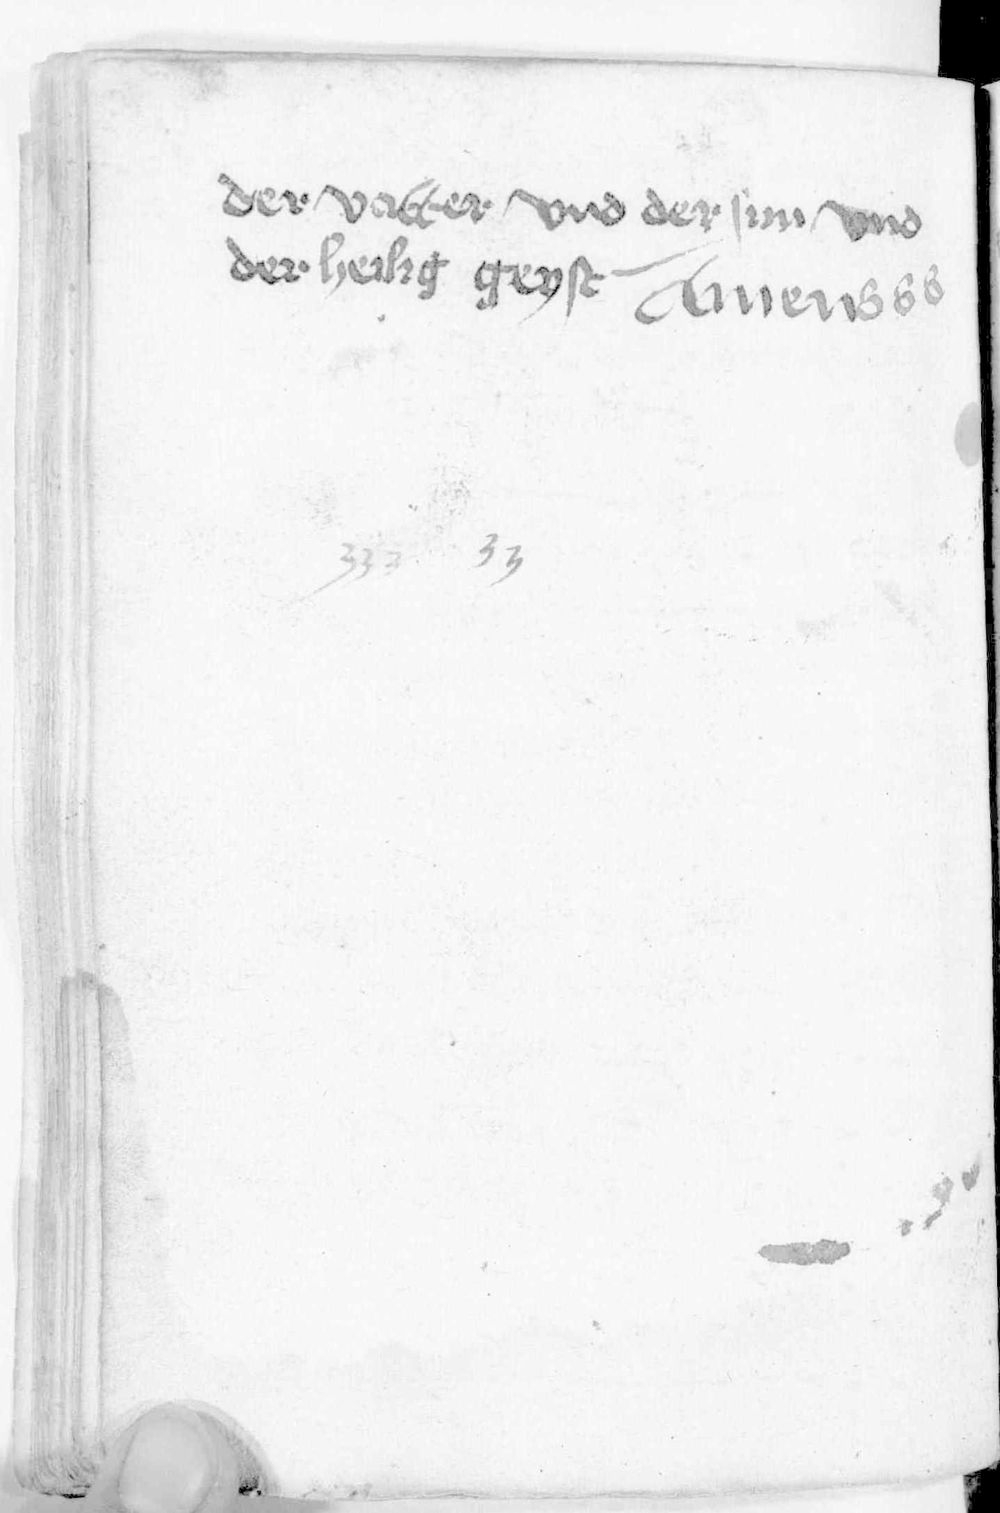 der vatter vnd der sun vnd
der heilig geyst Amen sss
333 33